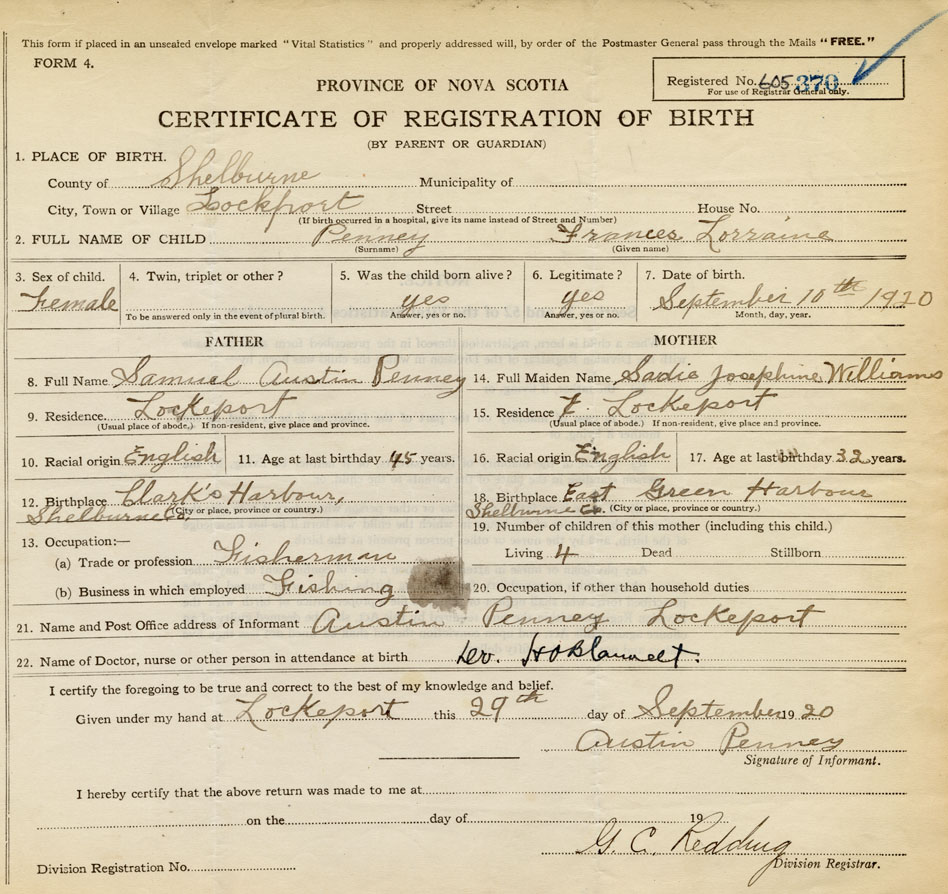 This form if placed in an unsealed envelope marked "Vital Statistics" and properly addressed will, by order of the Postmaster General pass through the Mails "FREE."
FORM 4.
Registered No. 605 370
For use of Registrar General only.
PROVINCE OF NOVA SCOTIA
CERTIFICATE OF REGISTRATION OF BIRTH
(BY PARENT OR GUARDIAN)
1. PLACE OF BIRTH.
County of Shelburne Municipality of
City, Town or Village Lockport Street House No.
(If birth occurred in a hospital, give its name instead of Street and Number)
2. FULL NAME OF CHILD Penney Frances Lorraine
(Surname) (Given name)
3. Sex of child. 4. Twin, triplet or other? 5. Was the child born alive? 6. Legitimate? 7. Date of birth.
Female yes yes September 10th 1920
To be answered only in the event of plural birth. Answer, yes or no. Answer, yes or no. Month, day, year.
FATHER MOTHER
8. Full Name Samuel Austin Penney 14. Full Maiden Name Sadie Josephine Williams
9. Residence Lockeport 15. Residence Lockeport
(Usual place of abode.) If non-resident, give place and province. (Usual place of abode.) If non-resident, give place and province.
10. Racial origin English 11. Age at last birthday 45 years. 16. Racial origin English 17. Age at last birthday 32 years.
12. Birthplace Clark's Harbour, 18. Birthplace East Green Harbour
Shelburne Co. (City or place, province or country.) Shelburne Co. (City or place, province or country.)
19. Number of children of this mother (including this child.)
13. Occupation:—
(a) Trade or profession Fisherman Living 4 Dead Stillborn
(b) Business in which employed Fishing 20. Occupation, if other than household duties
21. Name and Post Office address of Informant Austin Penney Lockeport
22. Name of Doctor, nurse or other person in attendance at birth
I certify the foregoing to be true and correct to the best of my knowledge and belief.
Given under my hand at Lockeport this 29th day of September 1920
Austin Penney
Signature of Informant.
I hereby certify that the above return was made to me at
on the day of 19
G. C. Redding
Division Registrar.
Division Registration No.